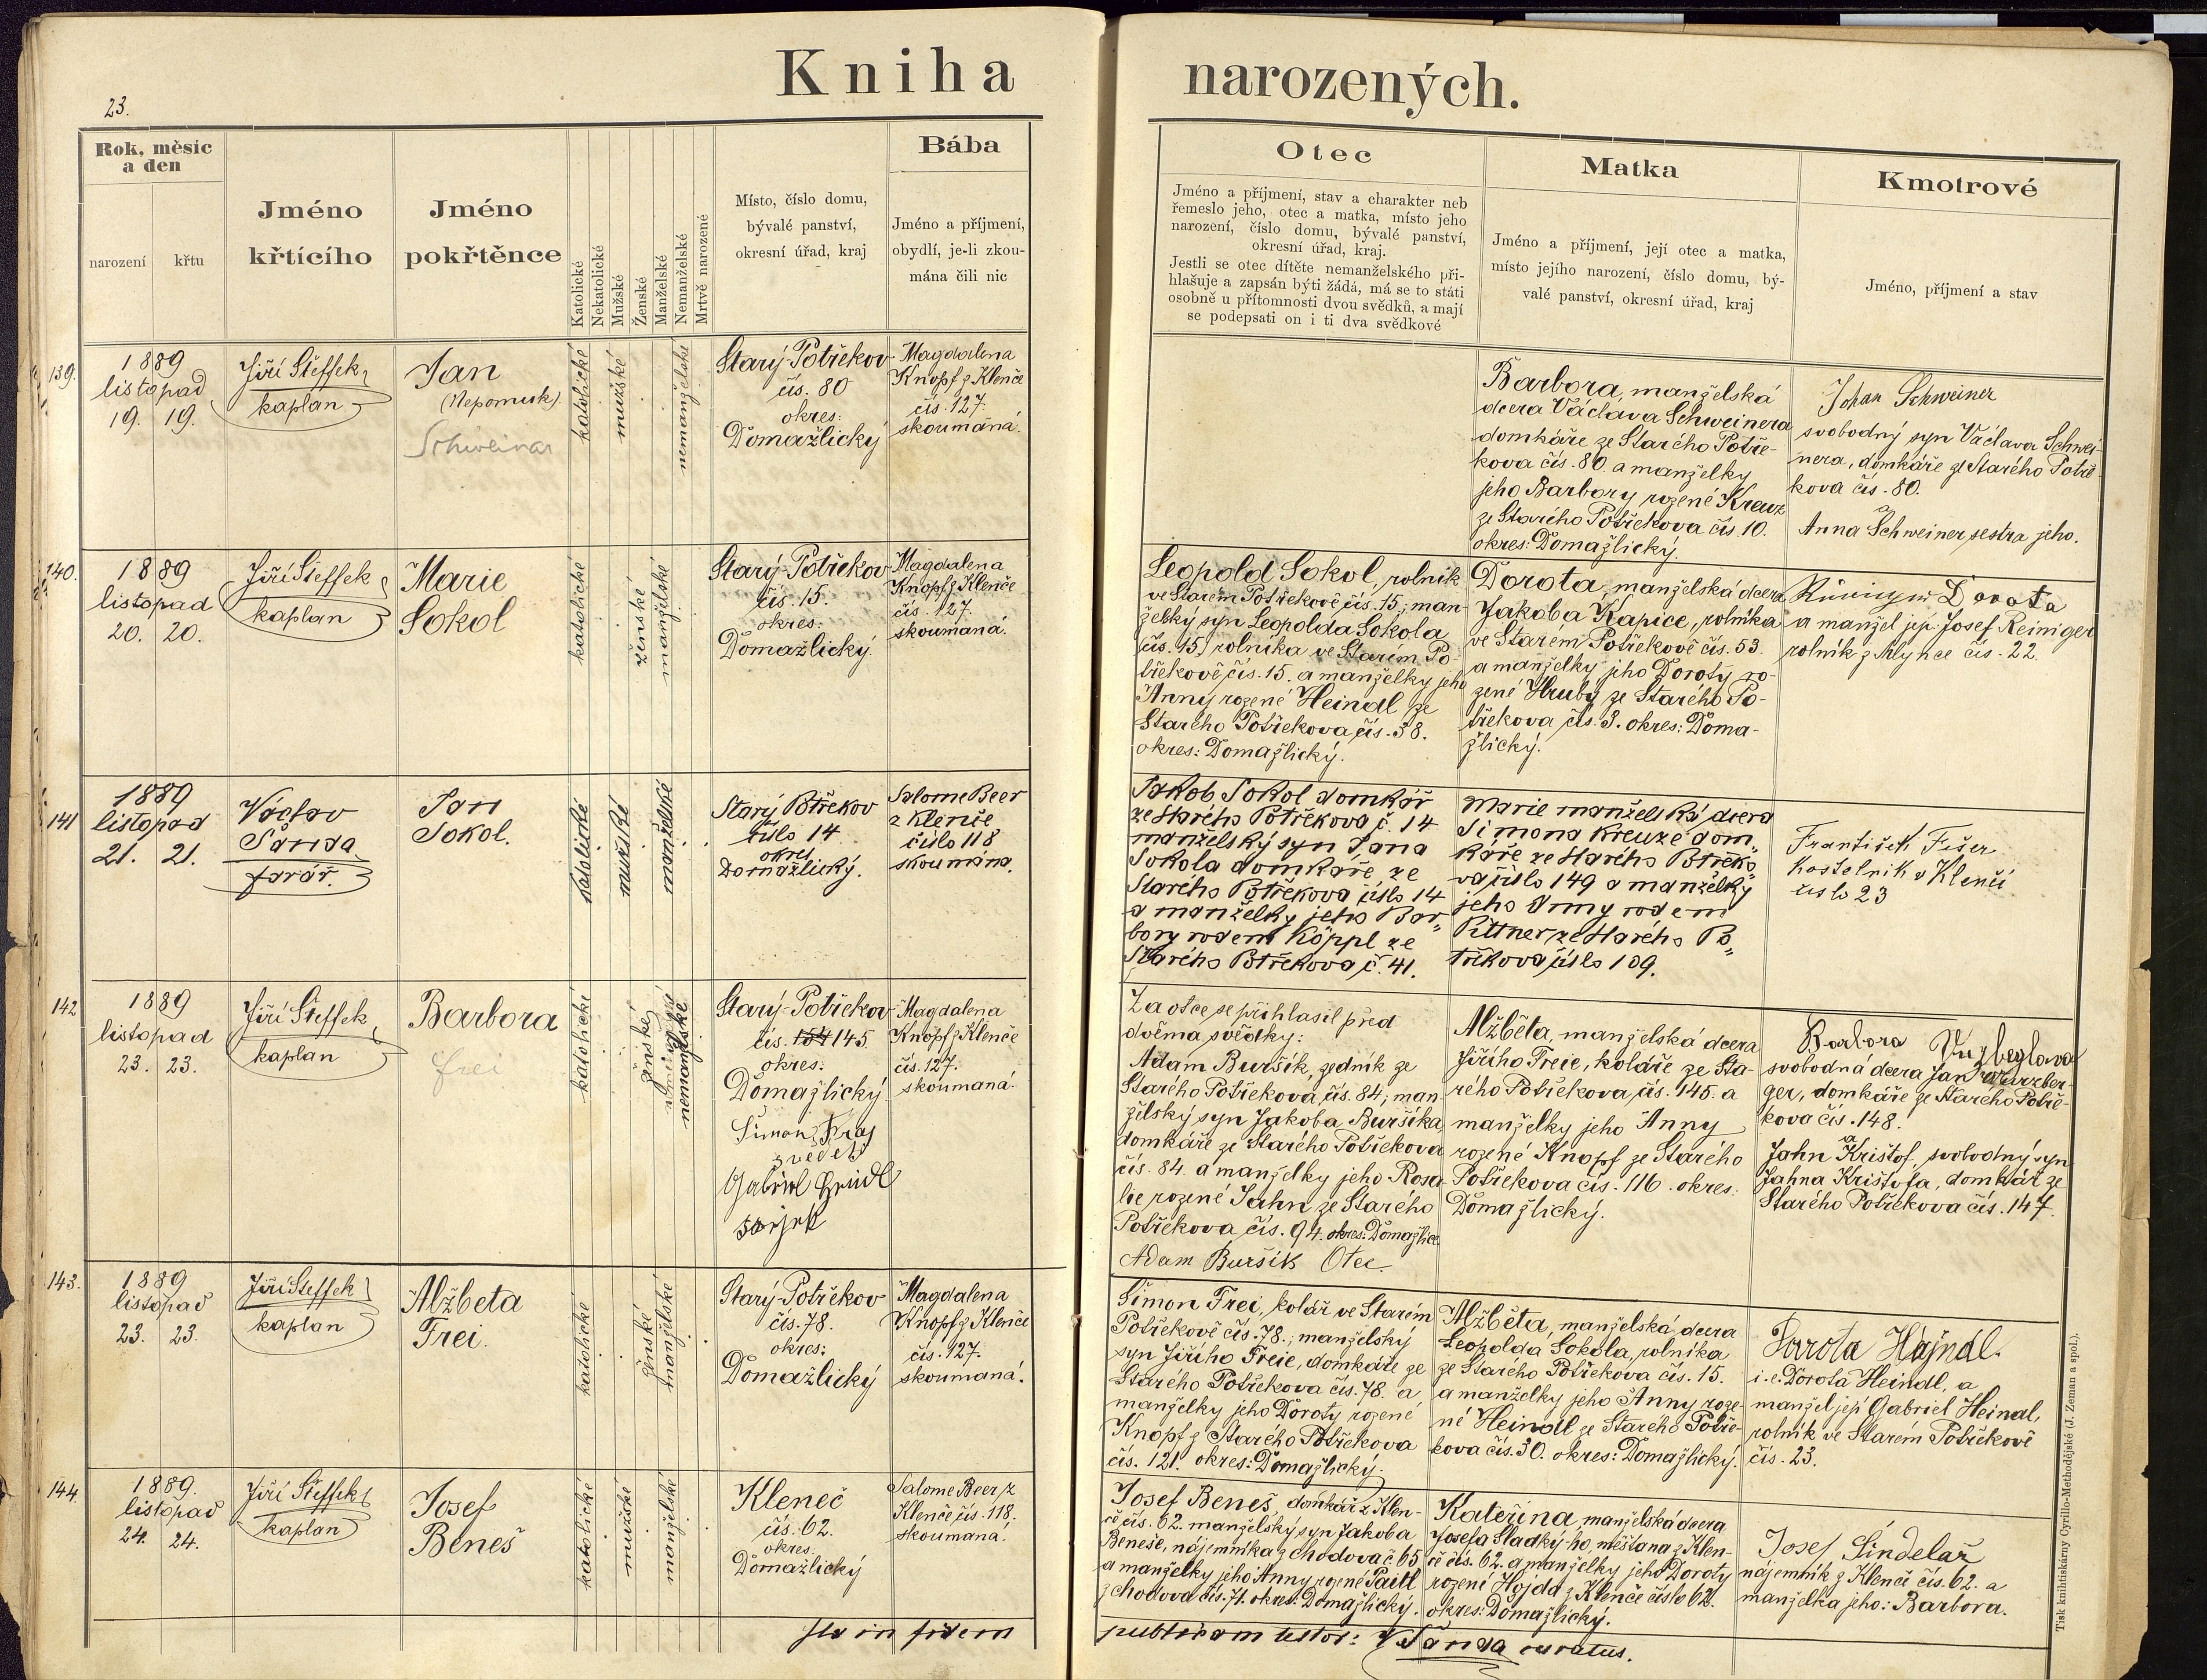 Kniha narozených.
23.
Rok, měsíc
a den
narození
křtu
Jméno
křtícího
Jméno
pokřtěnce
Katolické
Nekatolické
Mužské
Ženské
Manželské
Nemanželské
Mrtvě narozené
Místo, číslo domu,
bývalé panství,
okresní úřad, kraj
Bába
Jméno a příjmení,
obydlí, je-li zkou-
mána čili nic
Otec
Jméno a příjmení, stav a charakter neb
řemeslo jeho, otec a matka, místo jeho
narození, číslo domu, bývalé panství,
okresní úřad, kraj.
Jestli se otec dítěte nemanželského při-
hlašuje a zapsán býti žádá, má se to státi
osobně u přítomnosti dvou svědků, a mají
se podepsati on i ti dva svědkové
Matka
Jméno a příjmení, její otec a matka,
místo jejího narození, číslo domu, bý-
valé panství, okresní úřad, kraj
Kmotrové
Jméno, příjmení a stav
139.
1889
listopad
19. 19.
Jiří Šteffek,
kaplan
Jan
(Nepomuk)
Schweiner
katolické
mužské
nemanželské
Starý-Potřekov
čís. 80
okres:
Domažlický
Magdalena
Knopf z Klenče
čís. 127.
skoumaná.
Barbora, manželská
dcera Václava Schweinera
domkáře ze Starého Potře-
kova čís. 80. a manželky
jeho Barbory rozené Kreuz
ze Starého Potřekova čís 10.
okres: Domažlický.
Johan Schweiner
svobodný syn Václava Schwei-
nera, domkáře ze Starého Potře-
kova čís. 80.
a
Anna Schweiner, sestra jeho.
140.
1889
listopad
20. 20.
Jiří Šteffek,
kaplan
Marie
Sokol
katolické
ženské
manželské
Starý-Potřekov
čís. 15.
okres:
Domažlický.
Magdalena
Knopf z Klenče
čís. 127.
skoumaná.
Leopold Sokol, rolník
ve Starém Potřekově čís. 15; man-
želský syn Leopolda Sokola
(čís. 15) rolníka ve Starém Po-
třekově čís. 15. a manželky jeho
Anny rozené Heindl ze
Starého Potřekova čís. 38.
okres: Domažlický.
Dorota, manželská dcera
Jakoba Kapice, rolníka
ve Starém Potřekově čís. 53.
a manželky jeho Doroty ro-
zené Hrubý ze Starého Po-
třekova čís. 3. okres: Doma-
žlický.
Dorota
a manžel její Josef Reiniger
rolník z Mlýnce čís. 22.
141
1889
listopad
21. 21.
Václav
Šanda
farář.
Jan
Sokol.
katolické
mužské
manželské
Starý Potřekov
číslo 14
okres
Domažlický.
Salome Beer
z Klenče
číslo 118
skoumána.
Jakob Sokol domkář
ze Starého Potřekova č. 14
manželský syn Jana
Sokola domkáře ze
Starého Potřekova číslo 14
a manželky jeho Bar-
bory rodem Köppl ze
Starého Potřekova č. 41.
Marie manželská dcera
Simona Kreuze dom-
káře ze Starého Potřeko-
va číslo 149 a manželky
jeho Anny rodem
Pittner ze Starého Po-
třekova číslo 109.
František Fišer
kostelník v Klenčí
číslo 23
142
1889
listopad
23. 23.
Jiří Šteffek,
kaplan
Barbora
Frei
katolické
ženské
nemanželské
Starý-Potřekov
čís. 154 145
okres:
Domažlický
Šimon Kraj
svedek
Gabriel Heindl
Magdalena
Knopf z Klenče
čís. 127.
skoumaná.
Za otce se přihlasil před
dvěma svědky:
Adam Buršík, zedník ze
Starého Potřekova čís. 84; man-
želský syn Jakoba Buršíka
domkáře ze Starého Potřekova
čís. 84. a manželky jeho Rosa-
lie rozené Jahn ze Starého
Potřekova čís. 94. okres: Domažlice
Adam Buršik Otec
Alžběta, manželská dcera
Jiřího Freie, koláře ze Sta-
rého Potřekova čís. 145. a
manželky jeho Anny
rozené Knopf ze Starého
Potřekova čís. 116. okres:
Domažlický.
Barbora
svobodná dcera Jan Wurzber-
ger, domkáře ze Starého Potře-
kova čís. 148.
a
Jahn Krištof, svobodný syn
Jahna Krištofa, domkář ze
Starého Potřekova čís. 147.
143.
1889
listopad
23. 23.
Jiří Šteffek
kaplan
Alžběta
Frei
katolické
ženské
manželské
Starý-Potřekov
čís. 78.
okres:
Domažlický
Magdalena
Knopf z Klenče
čís. 127.
skoumaná.
Šimon Frei, kolář ve Starém
Potřekově čís. 78.; manželský
syn Jiřího Freie, domkáře ze
Starého Potřekova čís. 78. a
manželky jeho Doroty rozené
Knopf z Starého Potřekova
čís. 121. okres: Domažlický.
Alžběta, manželská dcera
Leopolda Sokola, rolníka
ze Starého Potřekova čís. 15.
a manželky jeho Anny roze-
né Heindl ze Starého Potře-
kova čís. 30. okres: Domažlický.
Dorota Hajndl.
i.e. Dorota Heindl, a
manžel její Gabriel Heindl,
rolník ve Starém Potřekově
čís. 23.
144.
1889.
listopad
24. 24.
Jiří Šteffek,
kaplan
Josef
Beneš
katolické
mužské
manželské
Kleneč
čís. 62.
okres:
Domažlický
Salome Beer, z
Klenče čís. 118.
skoumaná.
Josef Beneš, domkář z Klen-
če čís. 62. manželský syn Jakoba
Beneše, nájemníka z Chodova č. 65
a manželky jeho Anny rozené Paitl
z Chodova čís. 71. okres: Domažlický.
Kateřina manželská dcera
Josefa Sladký-ho, měšťana z Klen-
če čís. 62. a manželky jeho Doroty
rozené Hojda z Klenče číslo 62.
okres: Domažlický.
Josef Šindelař
nájemník z Klenče čís. 62. a
manželka jeho: Barbora.
Ita in fidem publicam testor: V Šanda curatus.
Tisk knihtiskárny Cyrillo-Methodějské (J. Zeman a spol.).